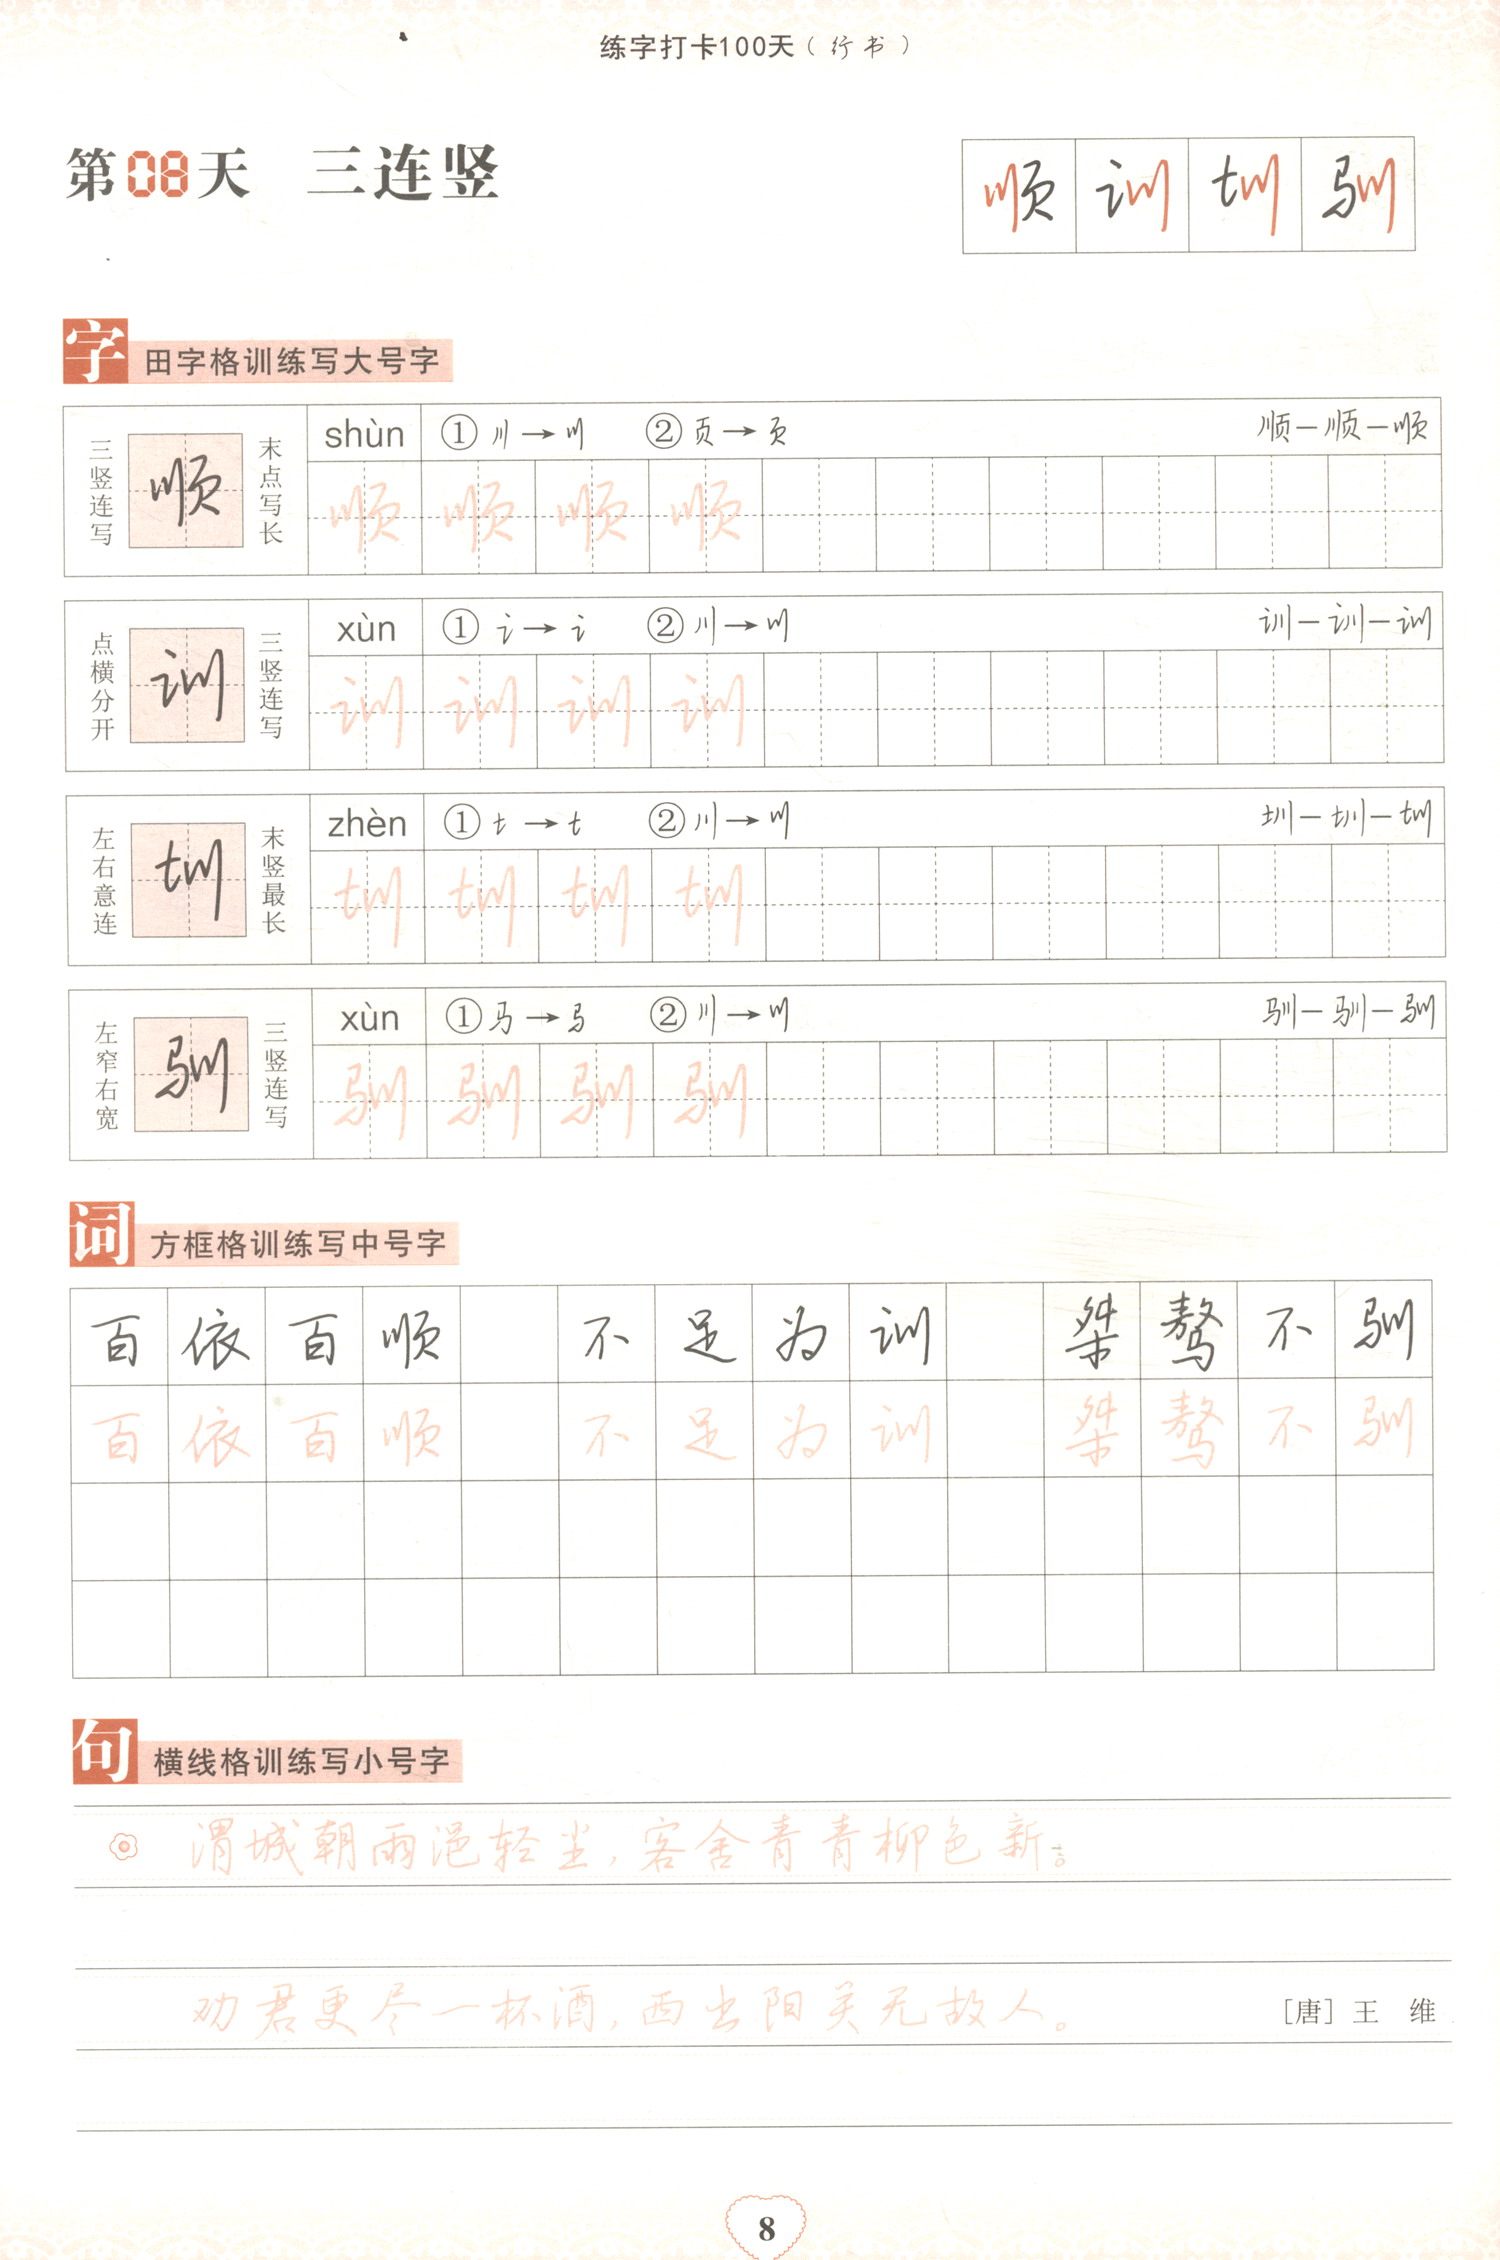 练字打卡100天（行书）
第08天 三连竖
顺 训 圳 驯
字 田字格训练写大号字
三竖连写 顺 末点写长 shùn ①川→川 ②页→页 顺—顺—顺
顺 顺 顺 顺
点横分开 训 三竖连写 xùn ①讠→讠 ②川→川 训—训—训
训 训 训 训
左右意连 圳 末竖最长 zhèn ①土→土 ②川→川 圳—圳—圳
圳 圳 圳 圳
左窄右宽 驯 三竖连写 xùn ①马→马 ②川→川 驯—驯—驯
驯 驯 驯 驯
词 方框格训练写中号字
百依百顺 不足为训 桀骜不驯
百依百顺 不足为训 桀骜不驯
句 横线格训练写小号字
渭城朝雨浥轻尘，客舍青青柳色新。
劝君更尽一杯酒，西出阳关无故人。 [唐] 王 维
8